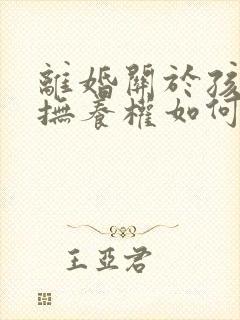 離婚關於孩
撫養權如何
王亞君